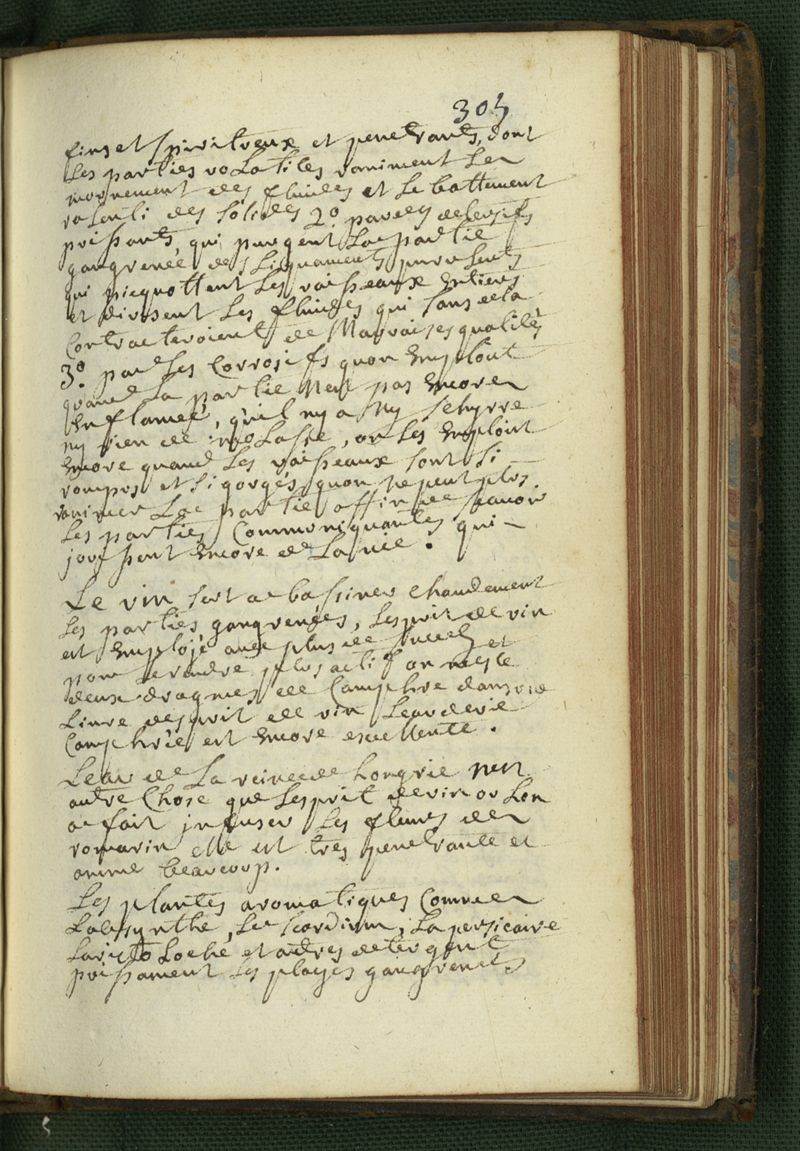 305
fins et spiritueux et penetrants, dont
Les parties volatiles raniment Le
mouvement des fluides et Le battement
ralenti des solides 2º. par des detersifs
puissants, qui purgent La partie
gangrenée des Liqueurs purulents
qui picquottent Les vaisseaux Entiers
et divisent Les fluides qui sans cela
Contracteroient de Mauvaises qualités
3º. par Les Corrosifs quon Emploit
quand La partie Nest pas Encore
Enflamée, quil ny a Ny schyrre
ny rien de molasse, on Les Emploit
Encore quand Les vaisseaux sont si
rompus et si gorgés quon ne peut plus
ranimer La partie affin de
Les parties Communiquantes qui
jouissent Encore de La vie.
Le vin sert a bassiner chaudement
Les parties gangrenées, Lesprit de vin
est Employé avec plus de succes et
pour Le rendre plus actif on mesle
deux dragmes de Camphre dans une
Livre desprit de vin Leau de vie
Camphrée est Encore excellente.
Leau de La reine de hongrie nest
autre Chose que Lesprit de vin ou Lon
a fait infuser Les fleurs de
romarin elle est tres penetrante et
anime beaucoup.
Les plantes aromatiques Comme
Labsynthe, Le scordium, La persicaire
Laristoloche et autres detergent
puissament Les playes gangrenées